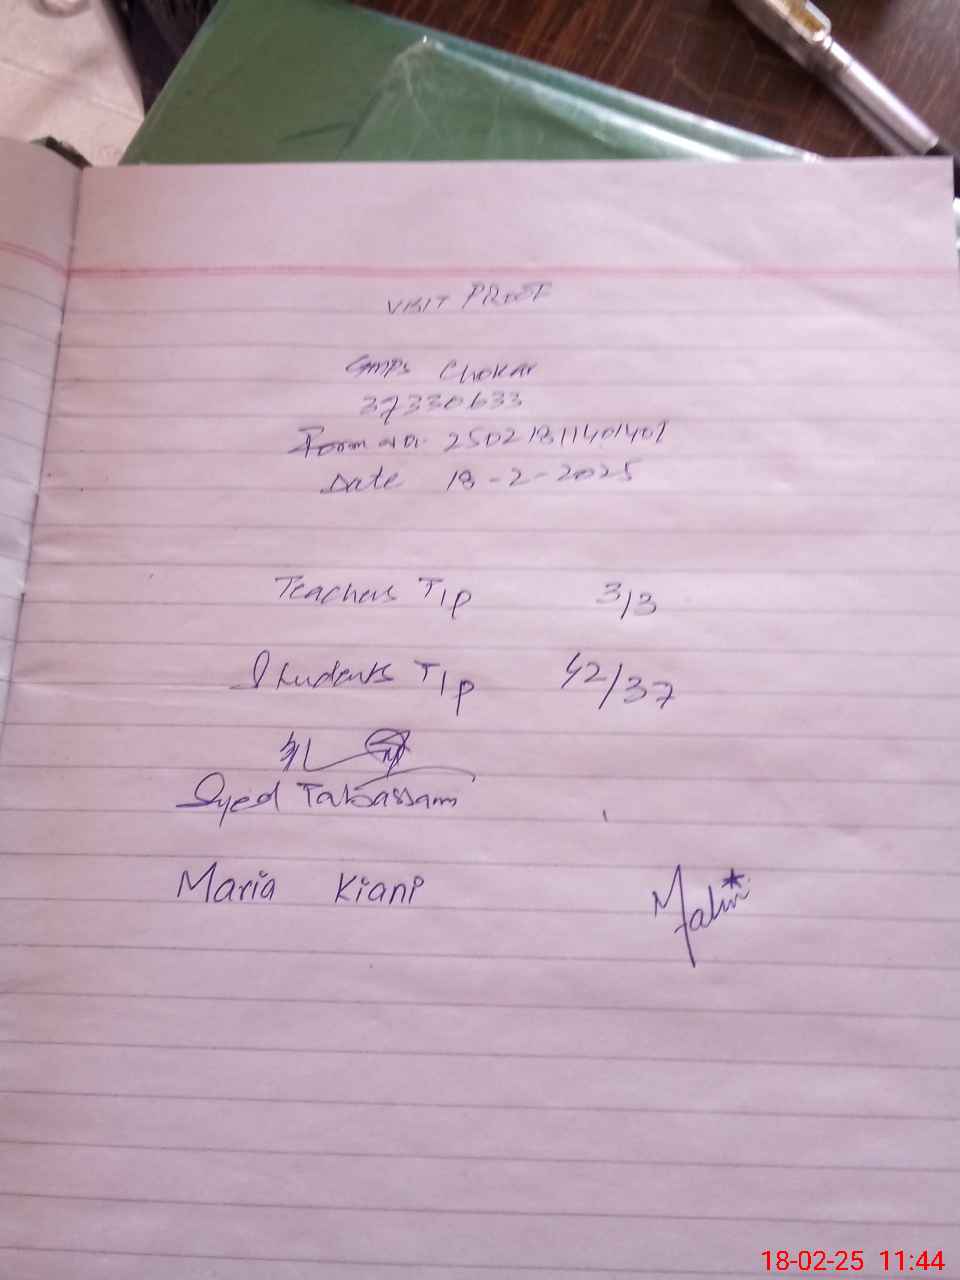 VISIT PROOF
GMPS Chokar
37330633
Form No. 25021811401401
Date 18-2-2025
Teachers T/P 3/3
Students T/P 42/37
Syed Tabassam
Maria Kiani
18-02-25 11:44